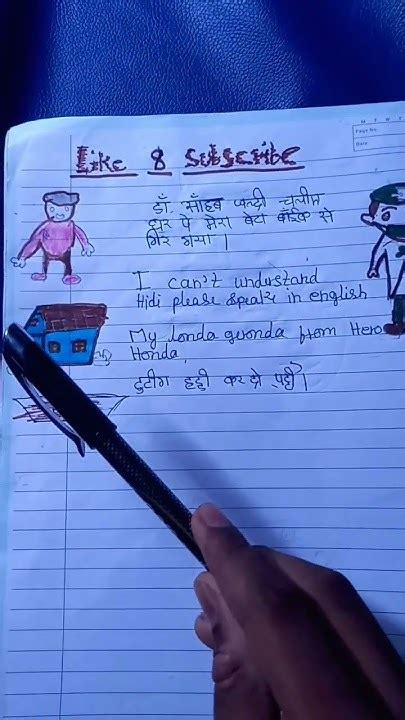 Like & Subscribe
डाँ. साँहब जल्दी चलीए
घर पे मेरा बेटा बाईक से
गिर गया।
I can't understand
Hidi please speak in english
My londa gironda from Hero
Honda,
टुटींग हड्डी कर दो पट्टी।
Page No.
Date